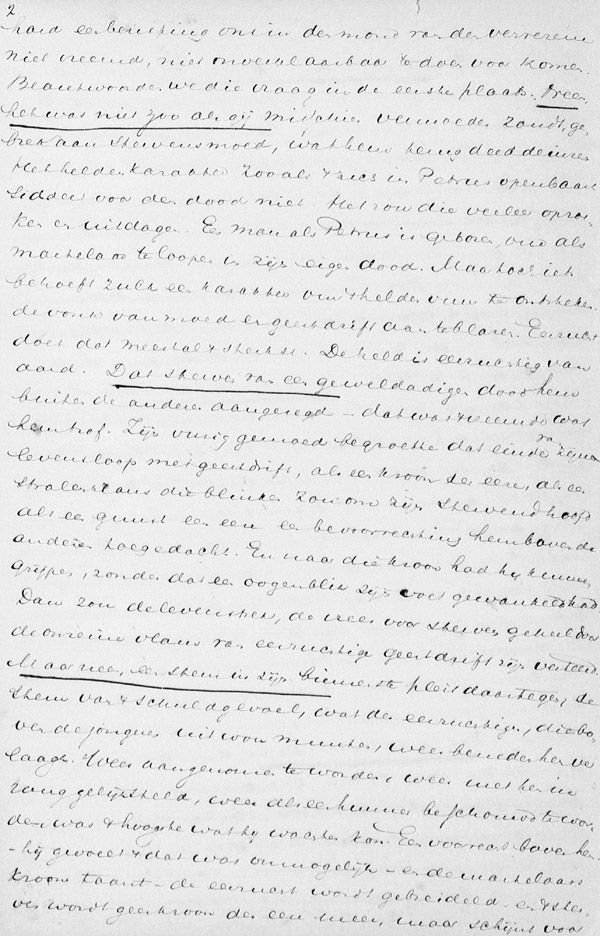 2
hard een berusting ons in den mond van den verrezene
niet vreemd, niet onverklaarbaar te doen voor komen.
Beantwoorden we die vraag in de eerste plaats. Neen
het was niet zoo als gij misschien vermoeden zoudt, ge
brek aan stervensmoed, wat hem terug deed deinzen
Het helden karakter zooals 't zich in Petrus openbaart
siddert voor den dood niet. Het zou die veeleer opzoe-
ken en uitdagen. Een man als Petrus is geboren, om als
martelaar te loopen in zijn eigen dood. Maar toch iets
behoeft zulk een karakter om 't heldenvuur te ontsteken
de vonk van moed en geestdrift aan te blazen. Eerzucht
doet dat meestal 't sterkst. De held is eerzuchtig van
aard. Dat sterven van een gewelddadigen dood hem
buiten de anderen aangezegd – dat was 't vreemde was
hem trof. Zijn vurig gemoed begroette dat einde van zijnen
levensloop met geestdrift, als een kroon der eere, als een
stralenkrans die blinken zou om zijn stervend hoofd
als een gunst een een bevoorrechting hem boven de
anderen toegedacht. En naar die kroon had hij kunnen
grijpen, zonder dat een oogenblik zijn voet gewankeld had
Dan zou de levenslust, de vrees voor sterven geheel door
de onreine vlam van eerzuchtige geestdrift zijn verteerd.
Maar neen, een stem in zijn binnenste pleit daartegen, de
stem van 't schuldgevoel, wat den eerzuchtigen, die bo-
ven de jongeren uit wou munten, weer beneden hen ver
laagt. Weer aangenomen te worden, weer met hen in
rang gelijkgesteld, weer als een hunner beschouwd te wor-
den was 't hoogste wat hij wachten kon. Een voorrecht boven hen
– hij gevoelt 't dat was onmogelijk – en de martelaars
kroon taant – de eerzucht wordt gebreideld – en 't ster-
ven wordt geen kroon der eere meer, maar schijnt voor